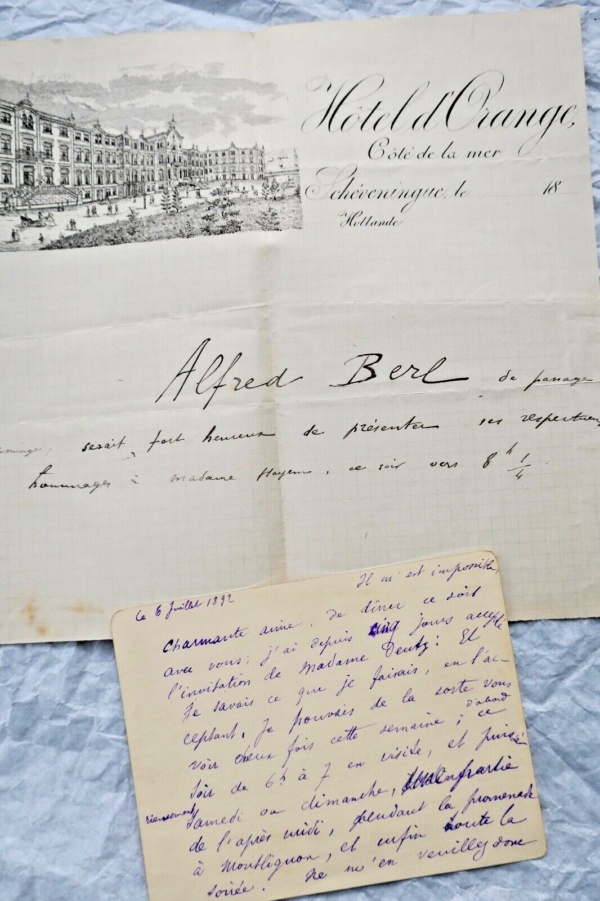 Hôtel d'Orange,
Côté de la mer
Schéveningue, le 18
Hollande
Alfred Berl de passage
serait fort heureux de présenter ses respectueux
hommages à madame Hayem, ce soir vers 8 h 1/4
Il m'est impossible,
Le 6 Juillet 1892
Charmante amie, de dîner ce soir
avec vous: j'ai depuis cinq jours accepté
l'invitation de Madame Deutz: Et
Je savais ce que je faisais, en l'ac-
ceptant. Je pouvais de la sorte vous
voir deux fois cette semaine; ce
soir de 6h à 7 en visite, et puis
d'abord
Samedi ou dimanche, partie
de l'après midi, pendant la promenade
à Montlignon, et enfin toute la
soirée. Ne m'en veuillez donc